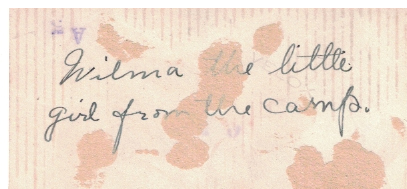 Wilma the little
girl from the camp.